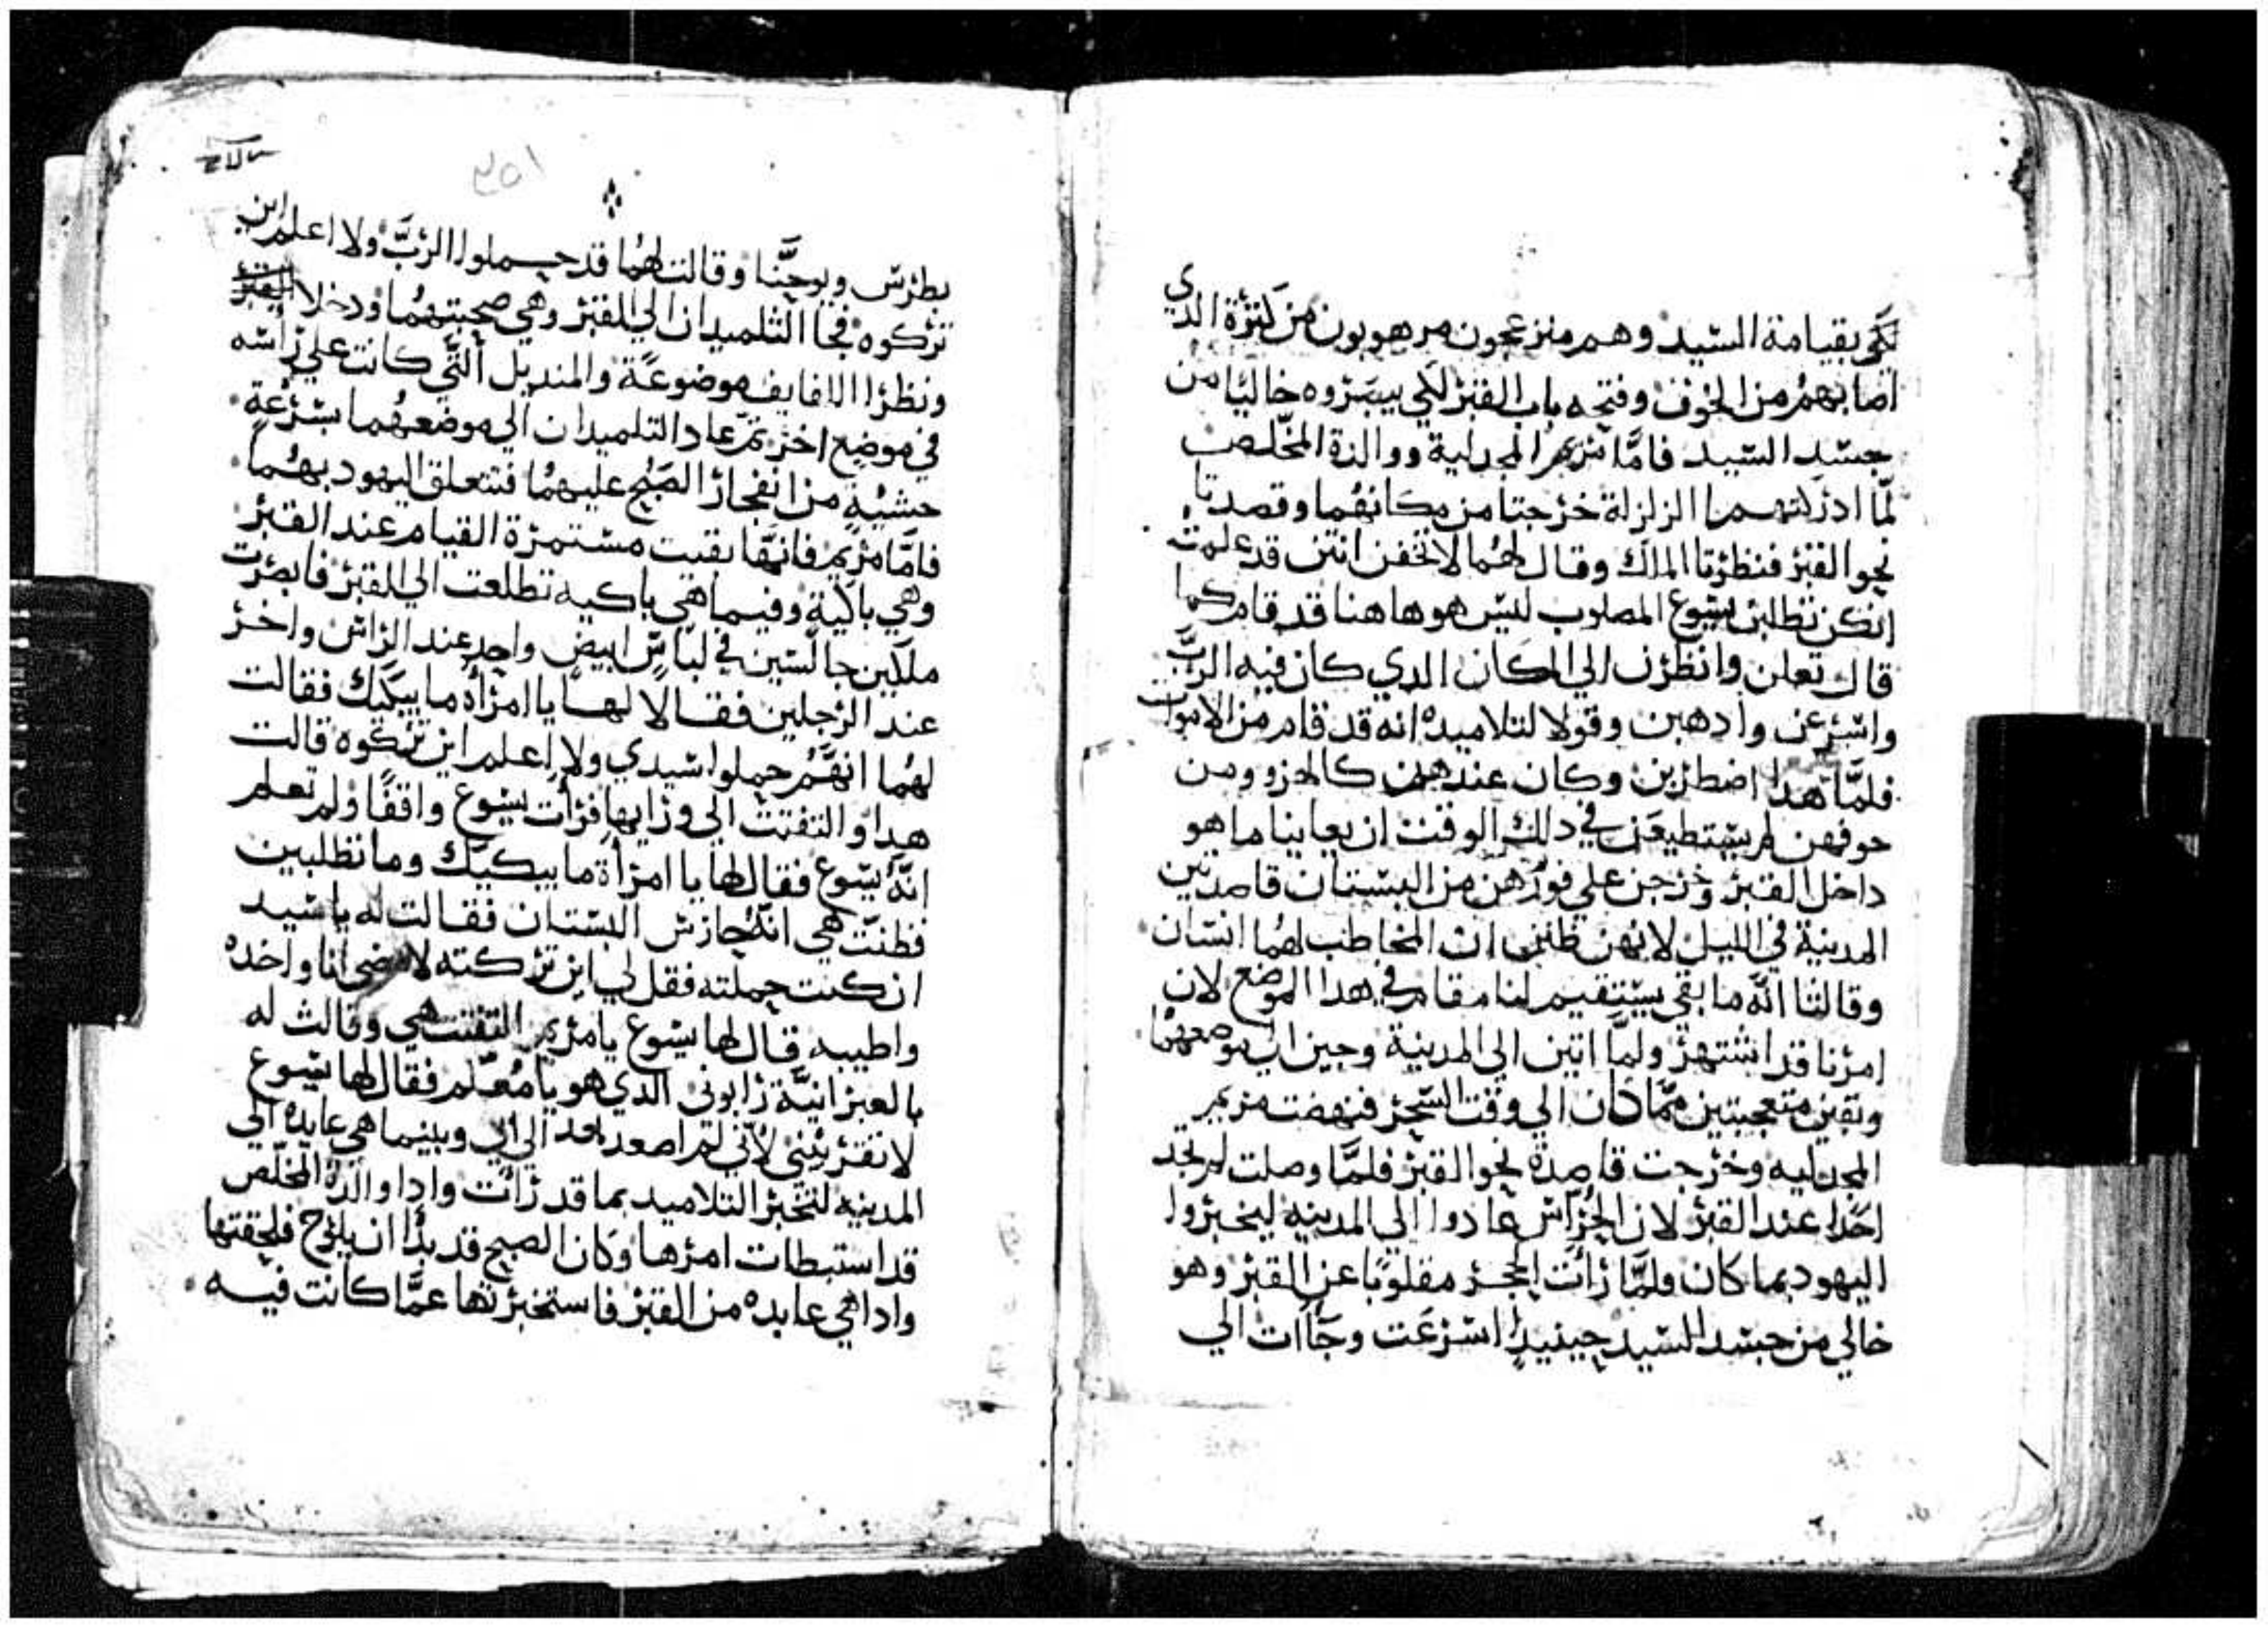 لكي بقيامة السيد وهم منزعجون مرهوبون من كثرة الدي
اصابهم من الخوف وفتحه باب القبر لكي يبصروه خاليا من
جسد السيد فامَّا مريم المجدلية ووالدة المخلّص
لمّا ادركتهما الزلزلة خرجتا من مكانهُما وقصدتا
نحو القبر فنظرتا الملاك وقال لهُما لا تخفن انتن قد علمت
انكن تطلبن يسوع المصلوب ليس هو هاهنا قد قام كما
قال تعلن وانظرن الي المكان الدي كان فيه الربَّ
واسرعن وادهبن وقولا لتلاميده انه قد قام من الاموات
فلمَّا هدا اضطربن وكان عندهن كالحزو ومن
خوفهن لم يستطيعن في دلك الوقت ان يعاينا ما هو
داخل القبر وخرجن علي فورهن من البستان قاصدتين
المدينة في الليل لانهن ظنن ان المخاطب لهُما انسان
وقالتا انّه ما بقي يستقيم لنا مقام في هدا الموضع لان
امرنا قد اشتهر ولمَّا اتين الي المدينة وجين الي موضعهمُا
وبقين متعجبتين ممَّا كان الي وقت السَّحر فنهضت مريم
المجدليه وخرجت قاصدة نحو القبر فلمَّا وصلت لم تجد
احَدا عند القبر لان الحُرّاس عادوا الي المدينه ليخبروا
اليهود بما كان ولمَّا رأت الحجر مقلوبًا عن القبر وهو
خالي من جسد السيد حينيدٍ اسرعَت وجَاات الي
٢٥١
بطرس ويوحنَّا وقالت لهُما قد حملوا الربَّ ولا اعلم اين
تركوه فجا التلميدان الي القبر وهي صحبتهمُا ودخلا القبر
ونظرا اللفايف موضوعَة والمنديل التّي كانت علي راسه
في موضع اخر ثم عاد التلميدان الي موضعهُما بسرعةٍ
خشيُةٍ من انفجار الصُبح عليهمُا فتتعلق اليهود بهمُا
فامَّا مريم فانهَّا بقيت مستمرة القيام عند القبر
وهي باكية وفيما هي باكيه تطلعت الي القبر فابصرت
ملكين جالسين في لباسٍ ابيض واحد عند الراس واخر
عند الرجلين فقالا لها يا امرأة ما يبكيك فقالت
لهُما انهَّمُ حملوا سيدي ولا اعلم اين تركوه قالت
هدا والتفتت الي ورايها فرأت يسوع واقفًا ولم تعلم
انّه يسوع فقال لها يا امرأة ما يبكيك وما تطلبين
فظنت هي انهُ حارس البستان فقالت له يا سيد
ان كنت حملته فقل لي اين تركته لامضي انا واخده
واطيبه قال لها يسوع يا مريم التفتت هي وقالت له
بالعبرانيَّة رابوني الدي هو يا مُعلّم فقال لها يسوع
لا تقتربيني لأني لم اصعد بعد الي ابي وبينما هي عايده الي
المدينه لتخبر التلاميد بما قد رأت وادا والدة المخلّص
قد استبطات امرها وكان الصبح قد بدا ان يلوح فلحقتها
وادا هي عايده من القبر فاستخبرتها عمَّا كانت فيه